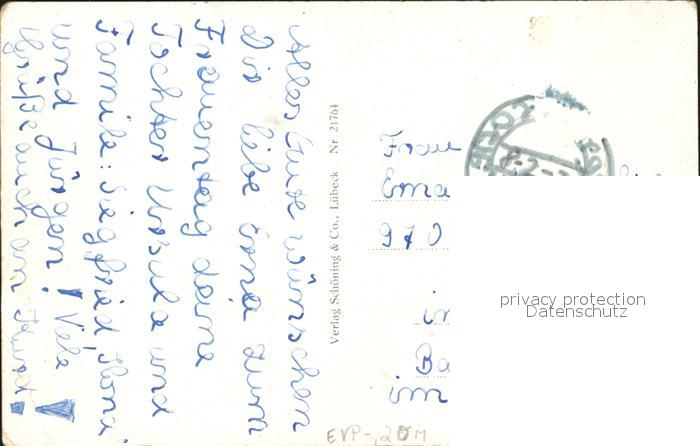 Alles Gute wünschen
Dir liebe Ernja zum
Frauentag deine
Tochter Ursula und
Familie: Siegfried, Ilona
und Jürgen! Viele
Grüße auch an Kurt!
Verlag Schöning & Co., Lübeck Nr 21764
Frau
Erna
970
in
Ba
im
privacy protection
Datenschutz
EVP -,20 M